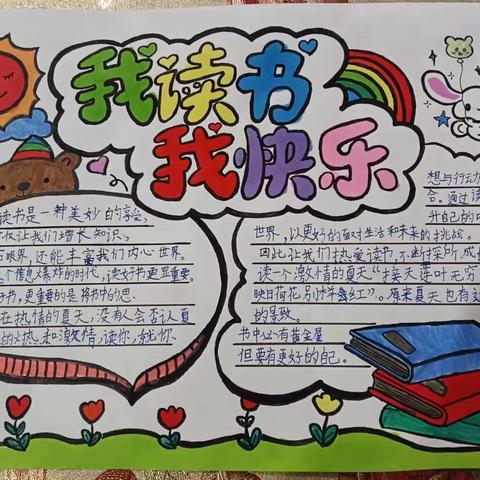 我读书
我快乐
读书是一种美妙的享受,
不仅让我们增长知识,
眼界,还能丰富我们内心世界。
这个信息爆炸的时代,读好书更显重要。
好书,更重要的是将书中的思
想与行动
合。通过读
升自己的
世界,以更好的面对生活和未来的挑战。
因此,让我们热爱读书,不断探所,成
读一个激情的夏天"接天莲叶无穷
映日荷花别样红"。原来夏天也有
的景致。
书中必有黄金屋
但要有更好的自己。
在热情的夏天,没有人会否认夏
的热和激情,读你,就你